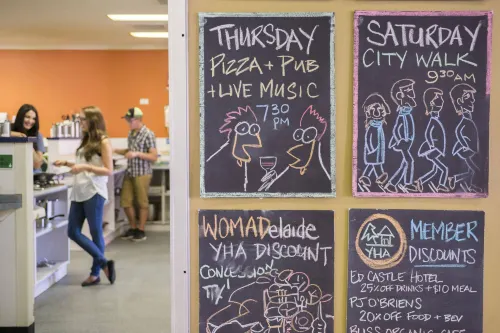 THURSDAY
PIZZA + PUB
+ LIVE MUSIC
7:30
PM
SATURDAY
CITY WALK
9:30AM
WOMADelaide
YHA DISCOUNT
CONCESSION
YHA
MEMBER
DISCOUNTS
ED CASTLE HOTEL
25% OFF DRINKS + $10 MEAL
PJ O'BRIENS
20% OFF FOOD + BEV
ORGANIC CAFE